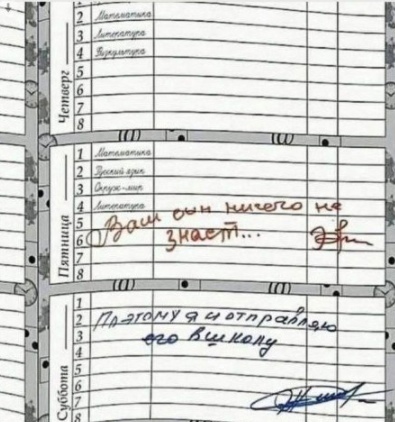 2 Математика
3 Литература
4 Физкультура
5
6
7
8
Четверг
1 Математика
2 Русский язык
3 Окруж-мир
4 Литература
5
6
7
8
Пятница
Ваш сын ничего не
знает...
1
2
3
4
5
6
7
8
Суббота
Поэтому я и отправляю
его в школу